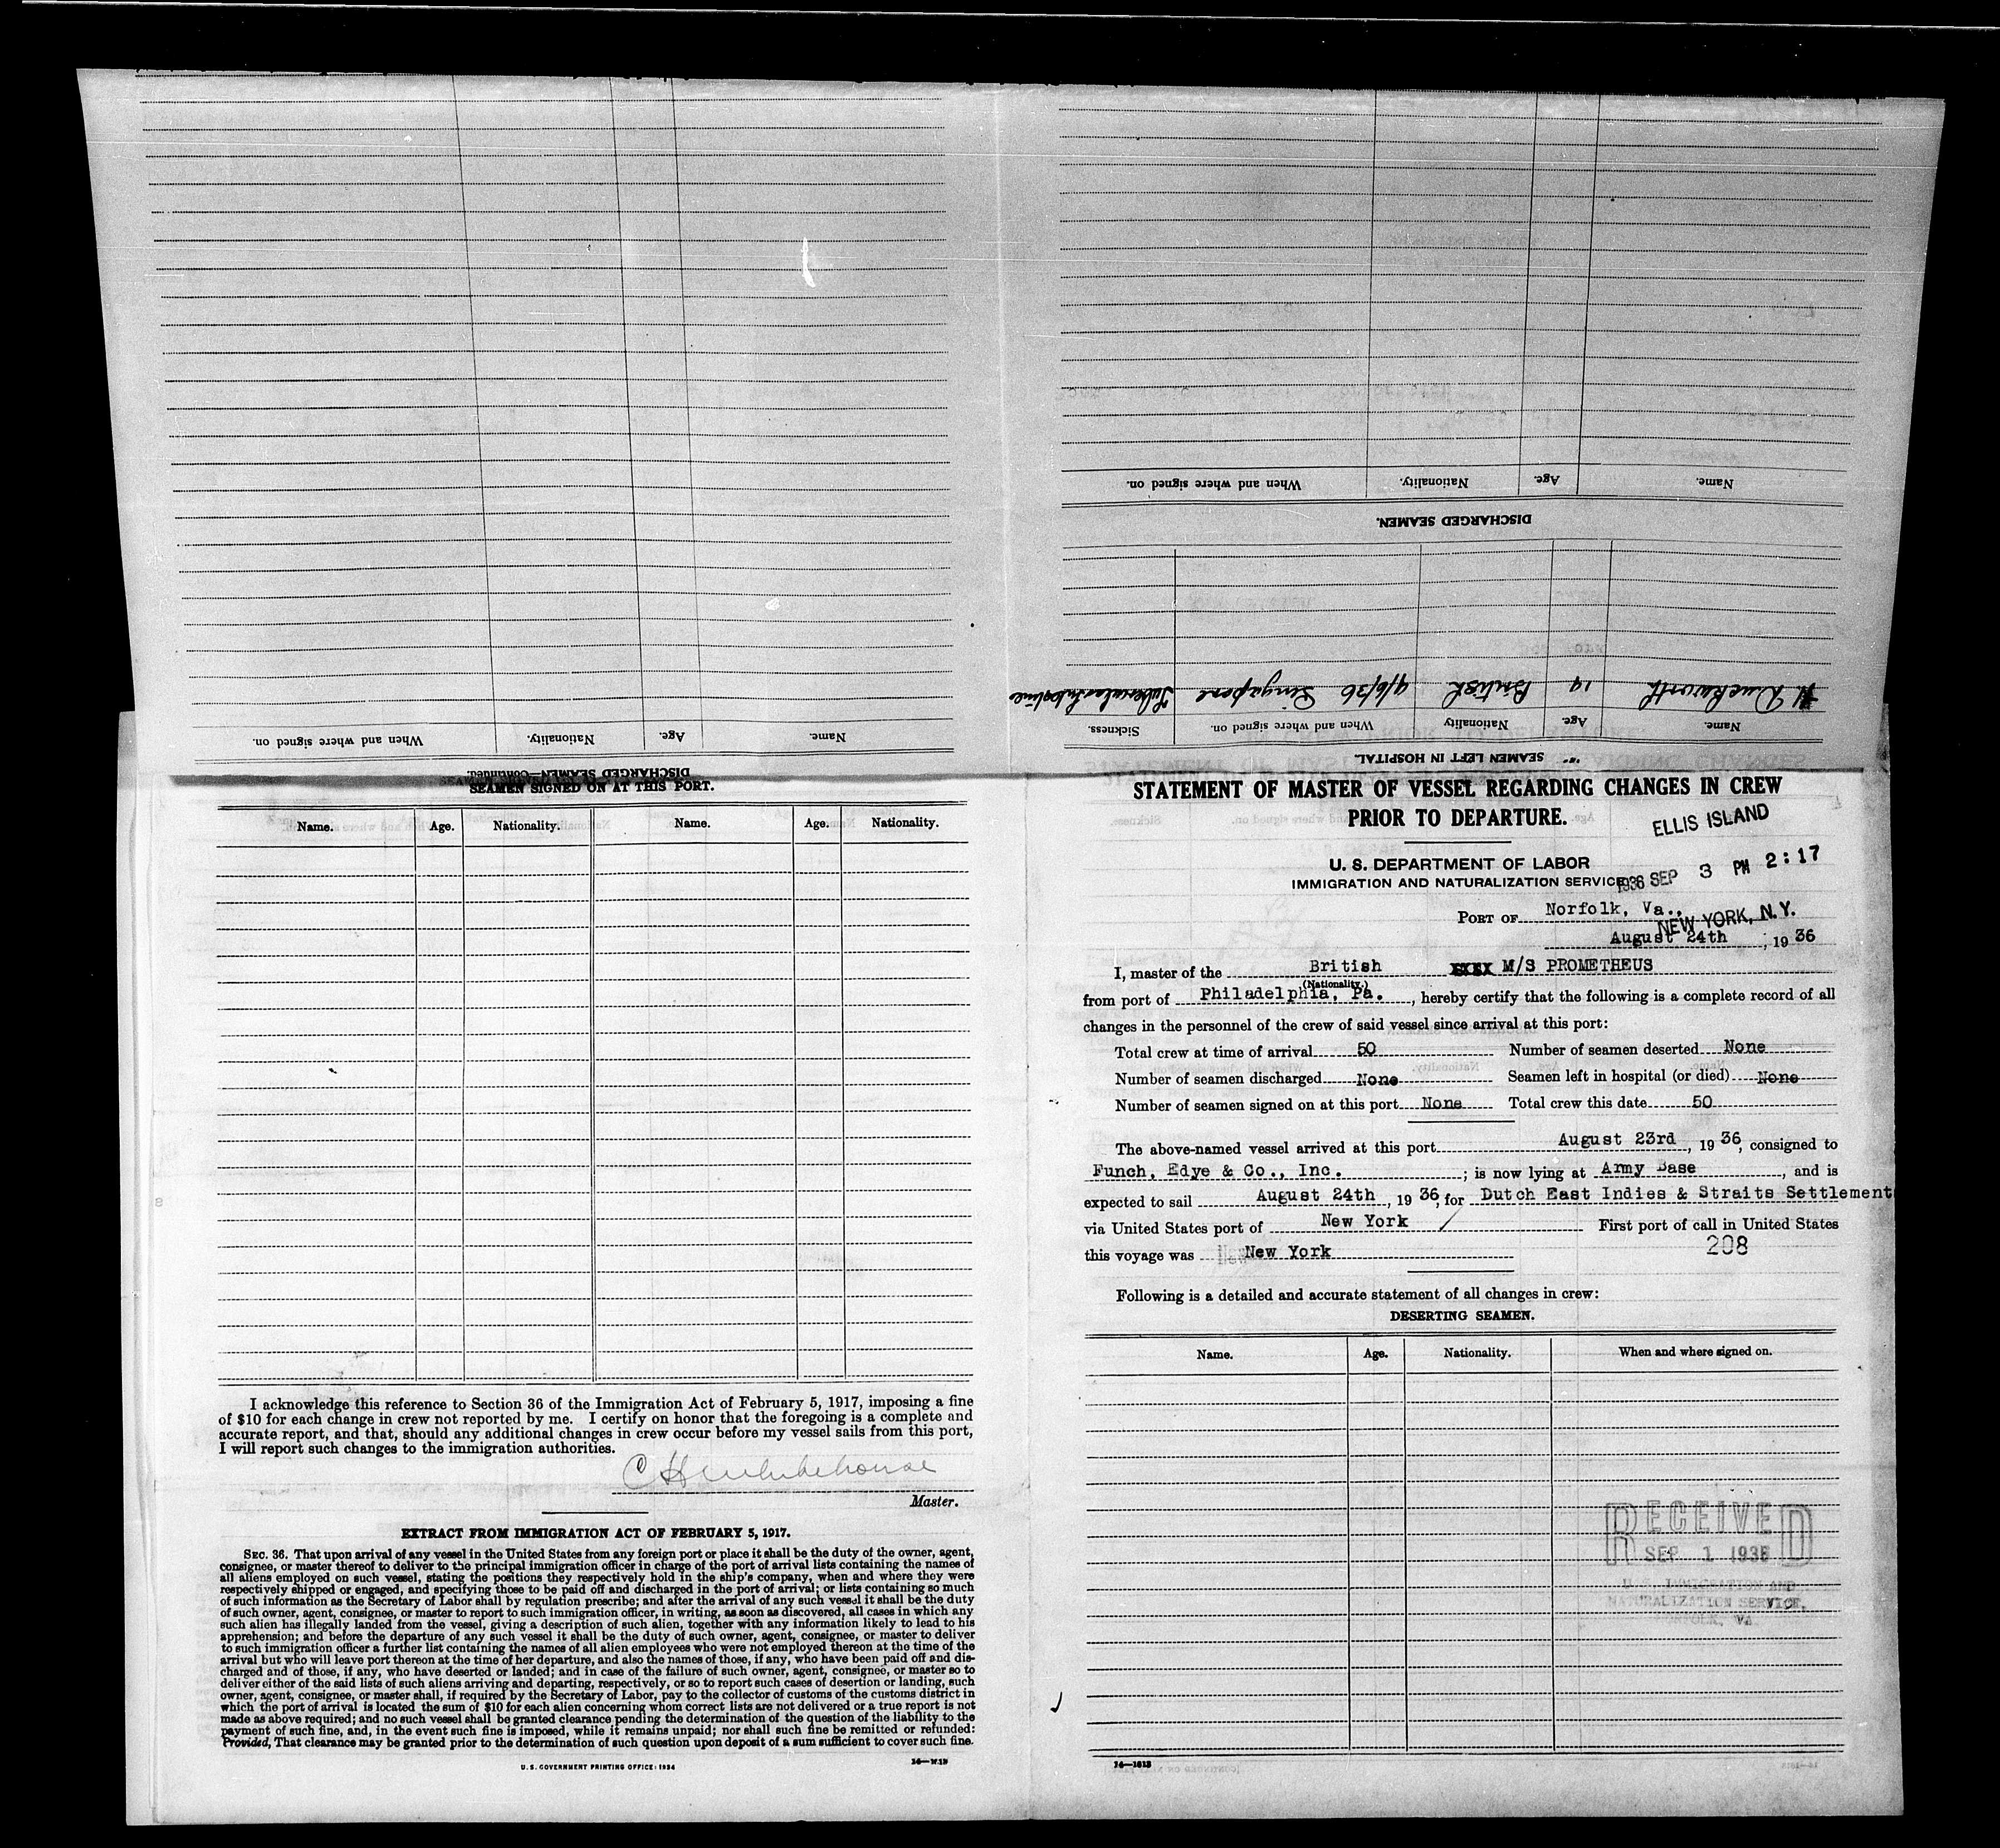 DISCHARGED SEAMEN—Continued.
Name. Age. Nationality. When and where signed on.
SEAMEN LEFT IN HOSPITAL.
Name. Age. Nationality When and where signed on. Sickness.
H Duckworth 19 British 4/6/36 Singapore
DISCHARGED SEAMEN.
Name. Age. Nationality. When and where signed on.
SEAMEN SIGNED ON AT THIS PORT.
Name. Age. Nationality. Name. Age. Nationality.
I acknowledge this reference to Section 36 of the Immigration Act of February 5, 1917, imposing a fine
of $10 for each change in crew not reported by me. I certify on honor that the foregoing is a complete and
accurate report, and that, should any additional changes in crew occur before my vessel sails from this port,
I will report such changes to the immigration authorities.
C H Whitehouse
Master.
EXTRACT FROM IMMIGRATION ACT OF FEBRUARY 5, 1917.
SEC. 36. That upon arrival of any vessel in the United States from any foreign port or place it shall be the duty of the owner, agent,
consignee, or master thereof to deliver to the principal immigration officer in charge of the port of arrival lists containing the names of
all aliens employed on such vessel, stating the positions they respectively hold in the ship's company, when and where they were
respectively shipped or engaged, and specifying those to be paid off and discharged in the port of arrival; or lists containing so much
of such information as the Secretary of Labor shall by regulation prescribe; and after the arrival of any such vessel it shall be the duty
of such owner, agent, consignee, or master to report to such immigration officer, in writing, as soon as discovered, all cases in which any
such alien has illegally landed from the vessel, giving a description of such alien, together with any information likely to lead to his
apprehension; and before the departure of any such vessel it shall be the duty of such owner, agent, consignee, or master to deliver
to such immigration officer a further list containing the names of all alien employees who were not employed thereon at the time of the
arrival but who will leave port thereon at the time of her departure, and also the names of those, if any, who have been paid off and dis-
charged and of those, if any, who have deserted or landed; and in case of the failure of such owner, agent, consignee, or master so to
deliver either of the said lists of such aliens arriving and departing, respectively, or so to report such cases of desertion or landing, such
owner, agent, consignee, or master shall, if required by the Secretary of Labor, pay to the collector of customs of the customs district in
which the port of arrival is located the sum of $10 for each alien concerning whom correct lists are not delivered or a true report is not
made as above required; and no such vessel shall be granted clearance pending the determination of the question of the liability to the
payment of such fine, and, in the event such fine is imposed, while it remains unpaid; nor shall such fine be remitted or refunded:
Provided, That clearance may be granted prior to the determination of such question upon deposit of a sum sufficient to cover such fine.
U. S. GOVERNMENT PRINTING OFFICE: 1934
STATEMENT OF MASTER OF VESSEL REGARDING CHANGES IN CREW
PRIOR TO DEPARTURE.
ELLIS ISLAND
U. S. DEPARTMENT OF LABOR
IMMIGRATION AND NATURALIZATION SERVICE
1936 SEP 3 PM 2:17
PORT OF Norfolk, Va.,
NEW YORK, N.Y.
August 24th, 19 36
I, master of the British M/S PROMETHEUS
(Nationality.)
from port of Philadelphia, Pa., hereby certify that the following is a complete record of all
changes in the personnel of the crew of said vessel since arrival at this port:
Total crew at time of arrival 50 Number of seamen deserted None
Number of seamen discharged None Seamen left in hospital (or died) None
Number of seamen signed on at this port None Total crew this date 50
The above-named vessel arrived at this port August 23rd, 19 36, consigned to
Funch, Edye & Co., Inc.; is now lying at Army Base, and is
expected to sail August 24th, 19 36, for Dutch East Indies & Straits Settlement
via United States port of New York First port of call in United States
this voyage was New York
208
Following is a detailed and accurate statement of all changes in crew:
DESERTING SEAMEN.
Name. Age. Nationality. When and where signed on.
RECEIVED
SEP 1 1936
U.S. IMMIGRATION AND
NATURALIZATION SERVICE,
NORFOLK, VA.
14—1818